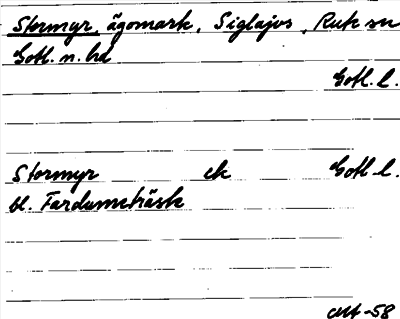 Stormyr, ägomark, Siglajvs, Ruk sn
Gotl. n. hd
Gotl. l.
Stormyr ek Gotl. l.
bl. Fardumeträsk
-58